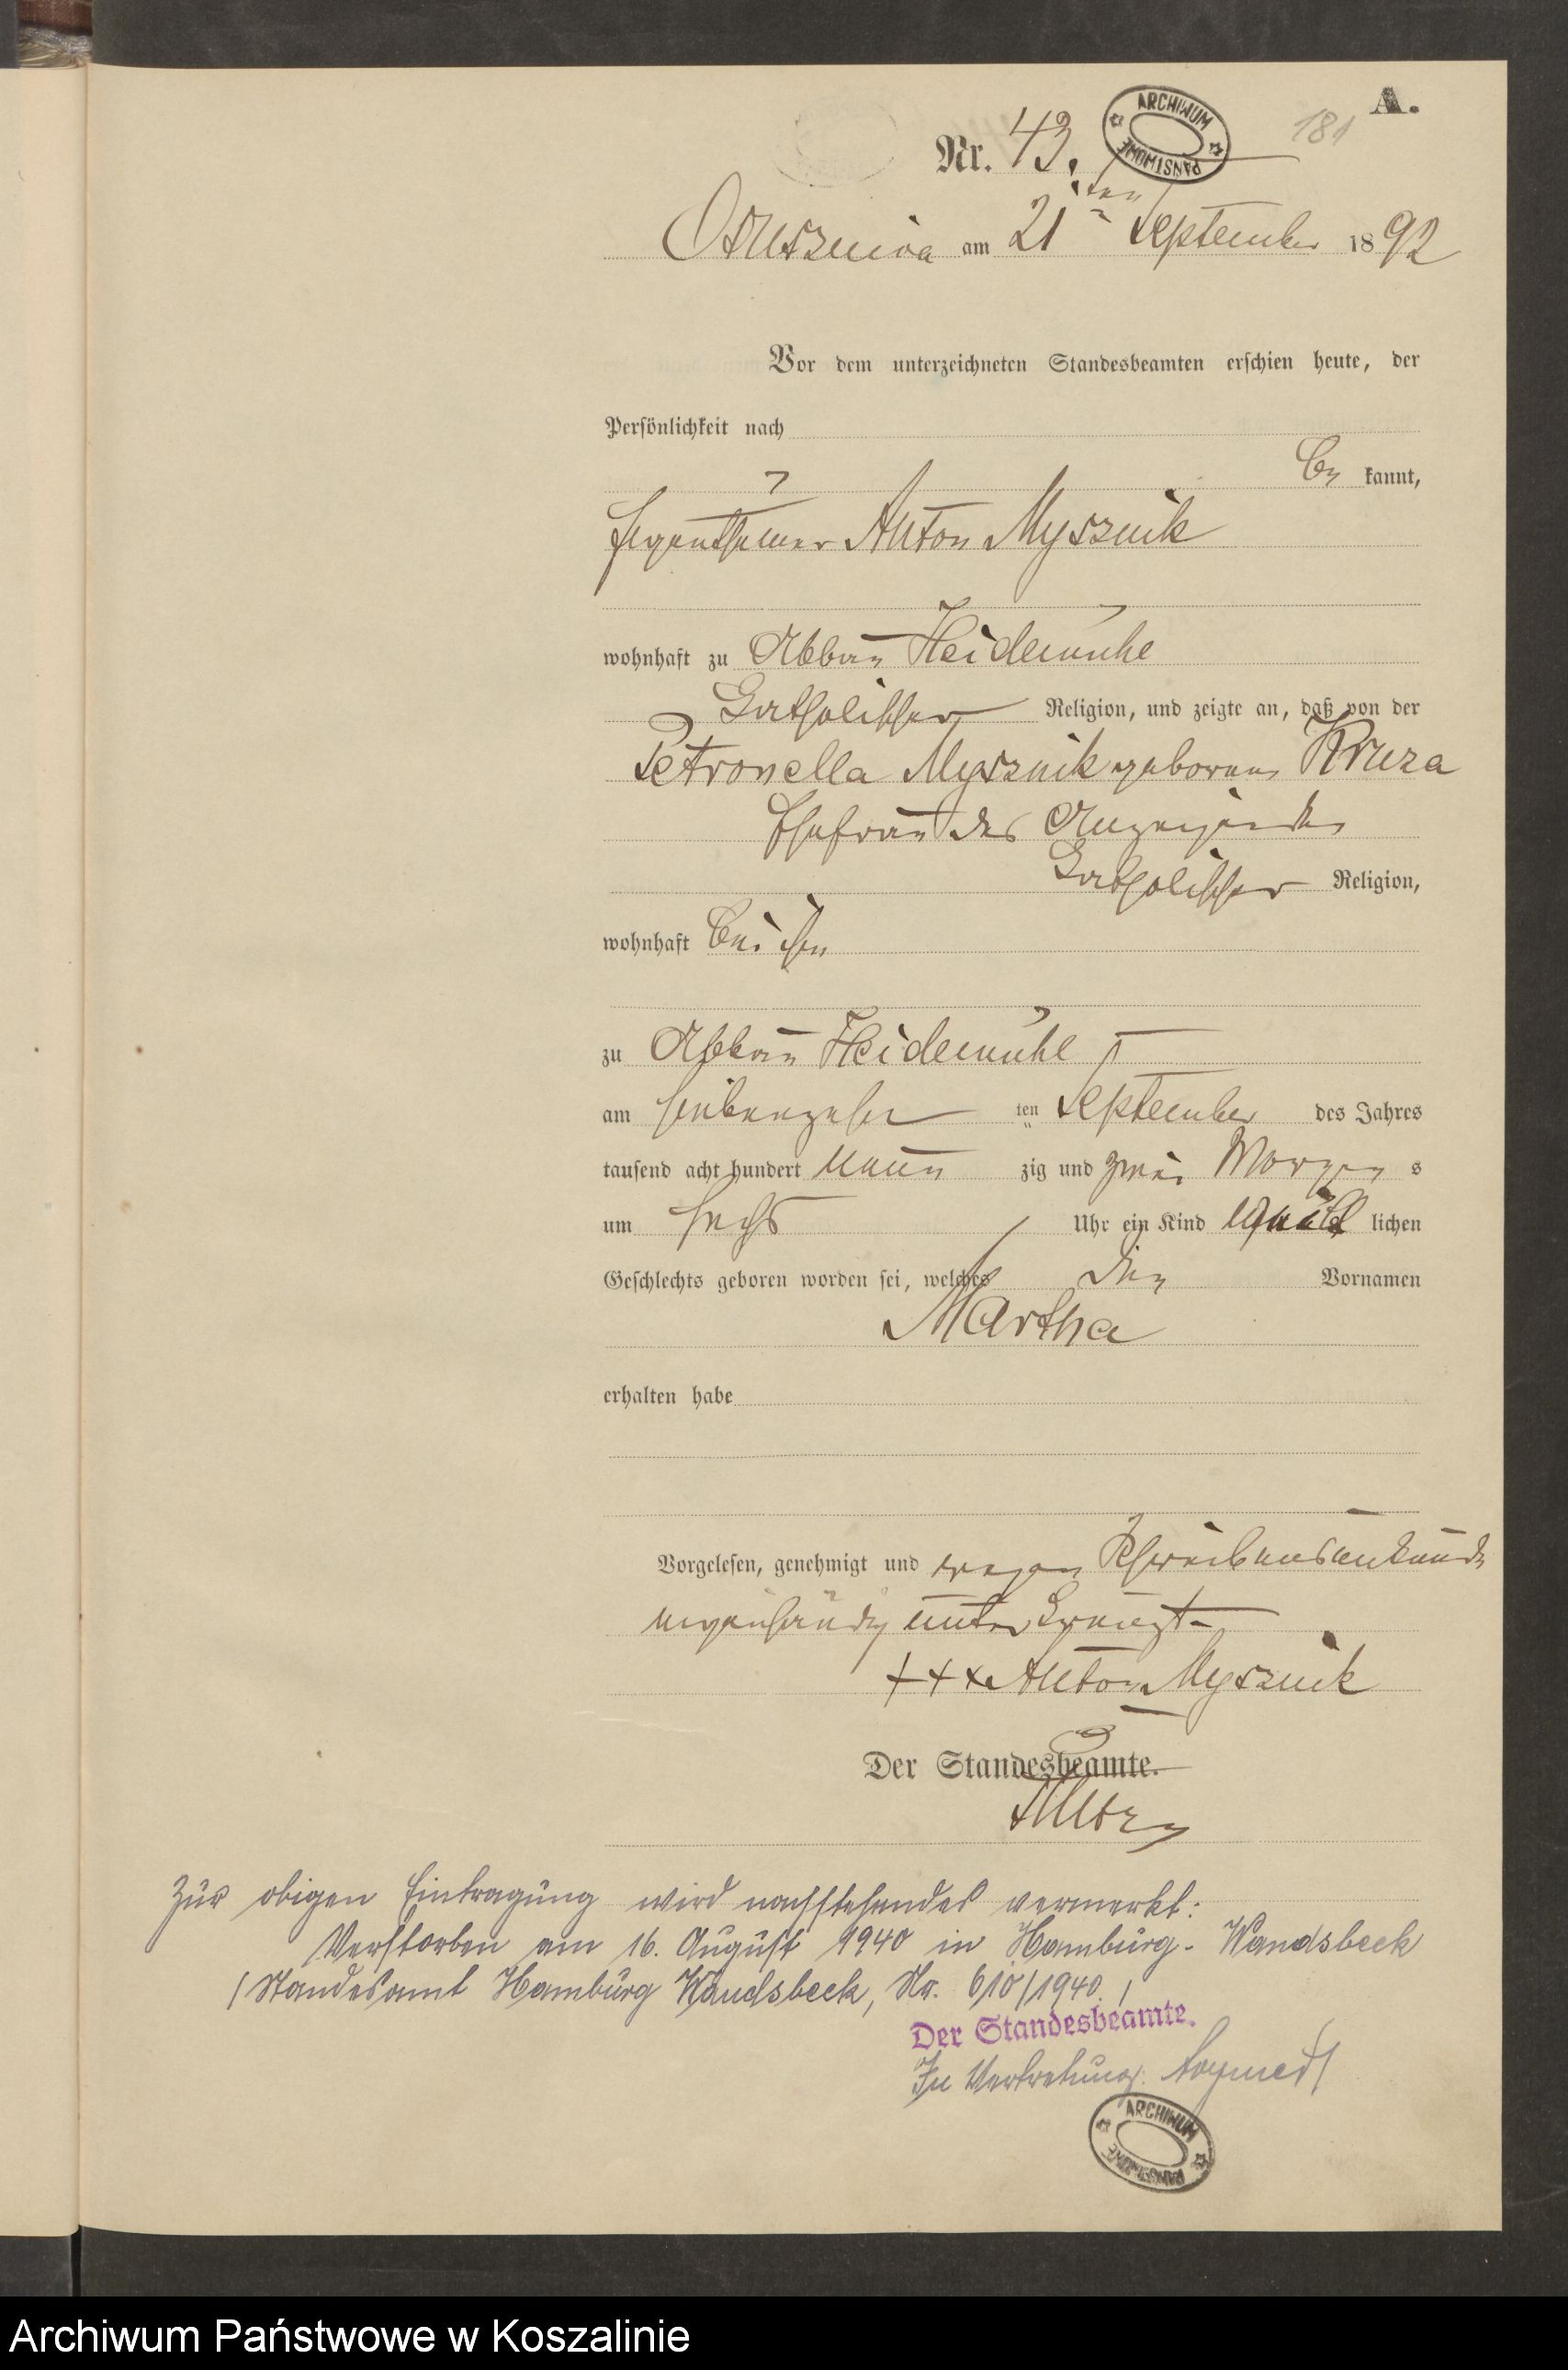 A.
181
Nr. 43.
ARCHIWUM PAŃSTWOWE
Ossusznica am 21ten September 1892
Vor dem unterzeichneten Standesbeamten erschien heute, der
Persönlichkeit nach
be kannt,
Eigenthümer Anton Mysznik
wohnhaft zu Abbau Heidemühl
katholischer Religion, und zeigte an, daß von der
Petronella Mysznik geborene Kruza
Ehefrau des Anzeigenden
katholischer Religion,
wohnhaft bei ihm
zu Abbau Heidemühl
am siebenzehn ten September des Jahres
tausend acht hundert neun zig und zwei Morgen s
um sechs Uhr ein Kind weib lichen
Geschlechts geboren worden sei, welches den Vornamen
Martha
erhalten habe
Vorgelesen, genehmigt und wegen Schreibensunkunde
eigenhändig unterkreuzt
+++ Anton Mysznik
Der Standesbeamte.
Zur obigen Eintragung wird nachstehendes vermerkt:
Verstorben am 16. August 1940 in Hamburg-Wandsbeck
/Standesamt Hamburg Wandsbeck, Nr. 610/1940./
Der Standesbeamte.
In Vertretung:
ARCHIWUM PAŃSTWOWE
Archiwum Państwowe w Koszalinie